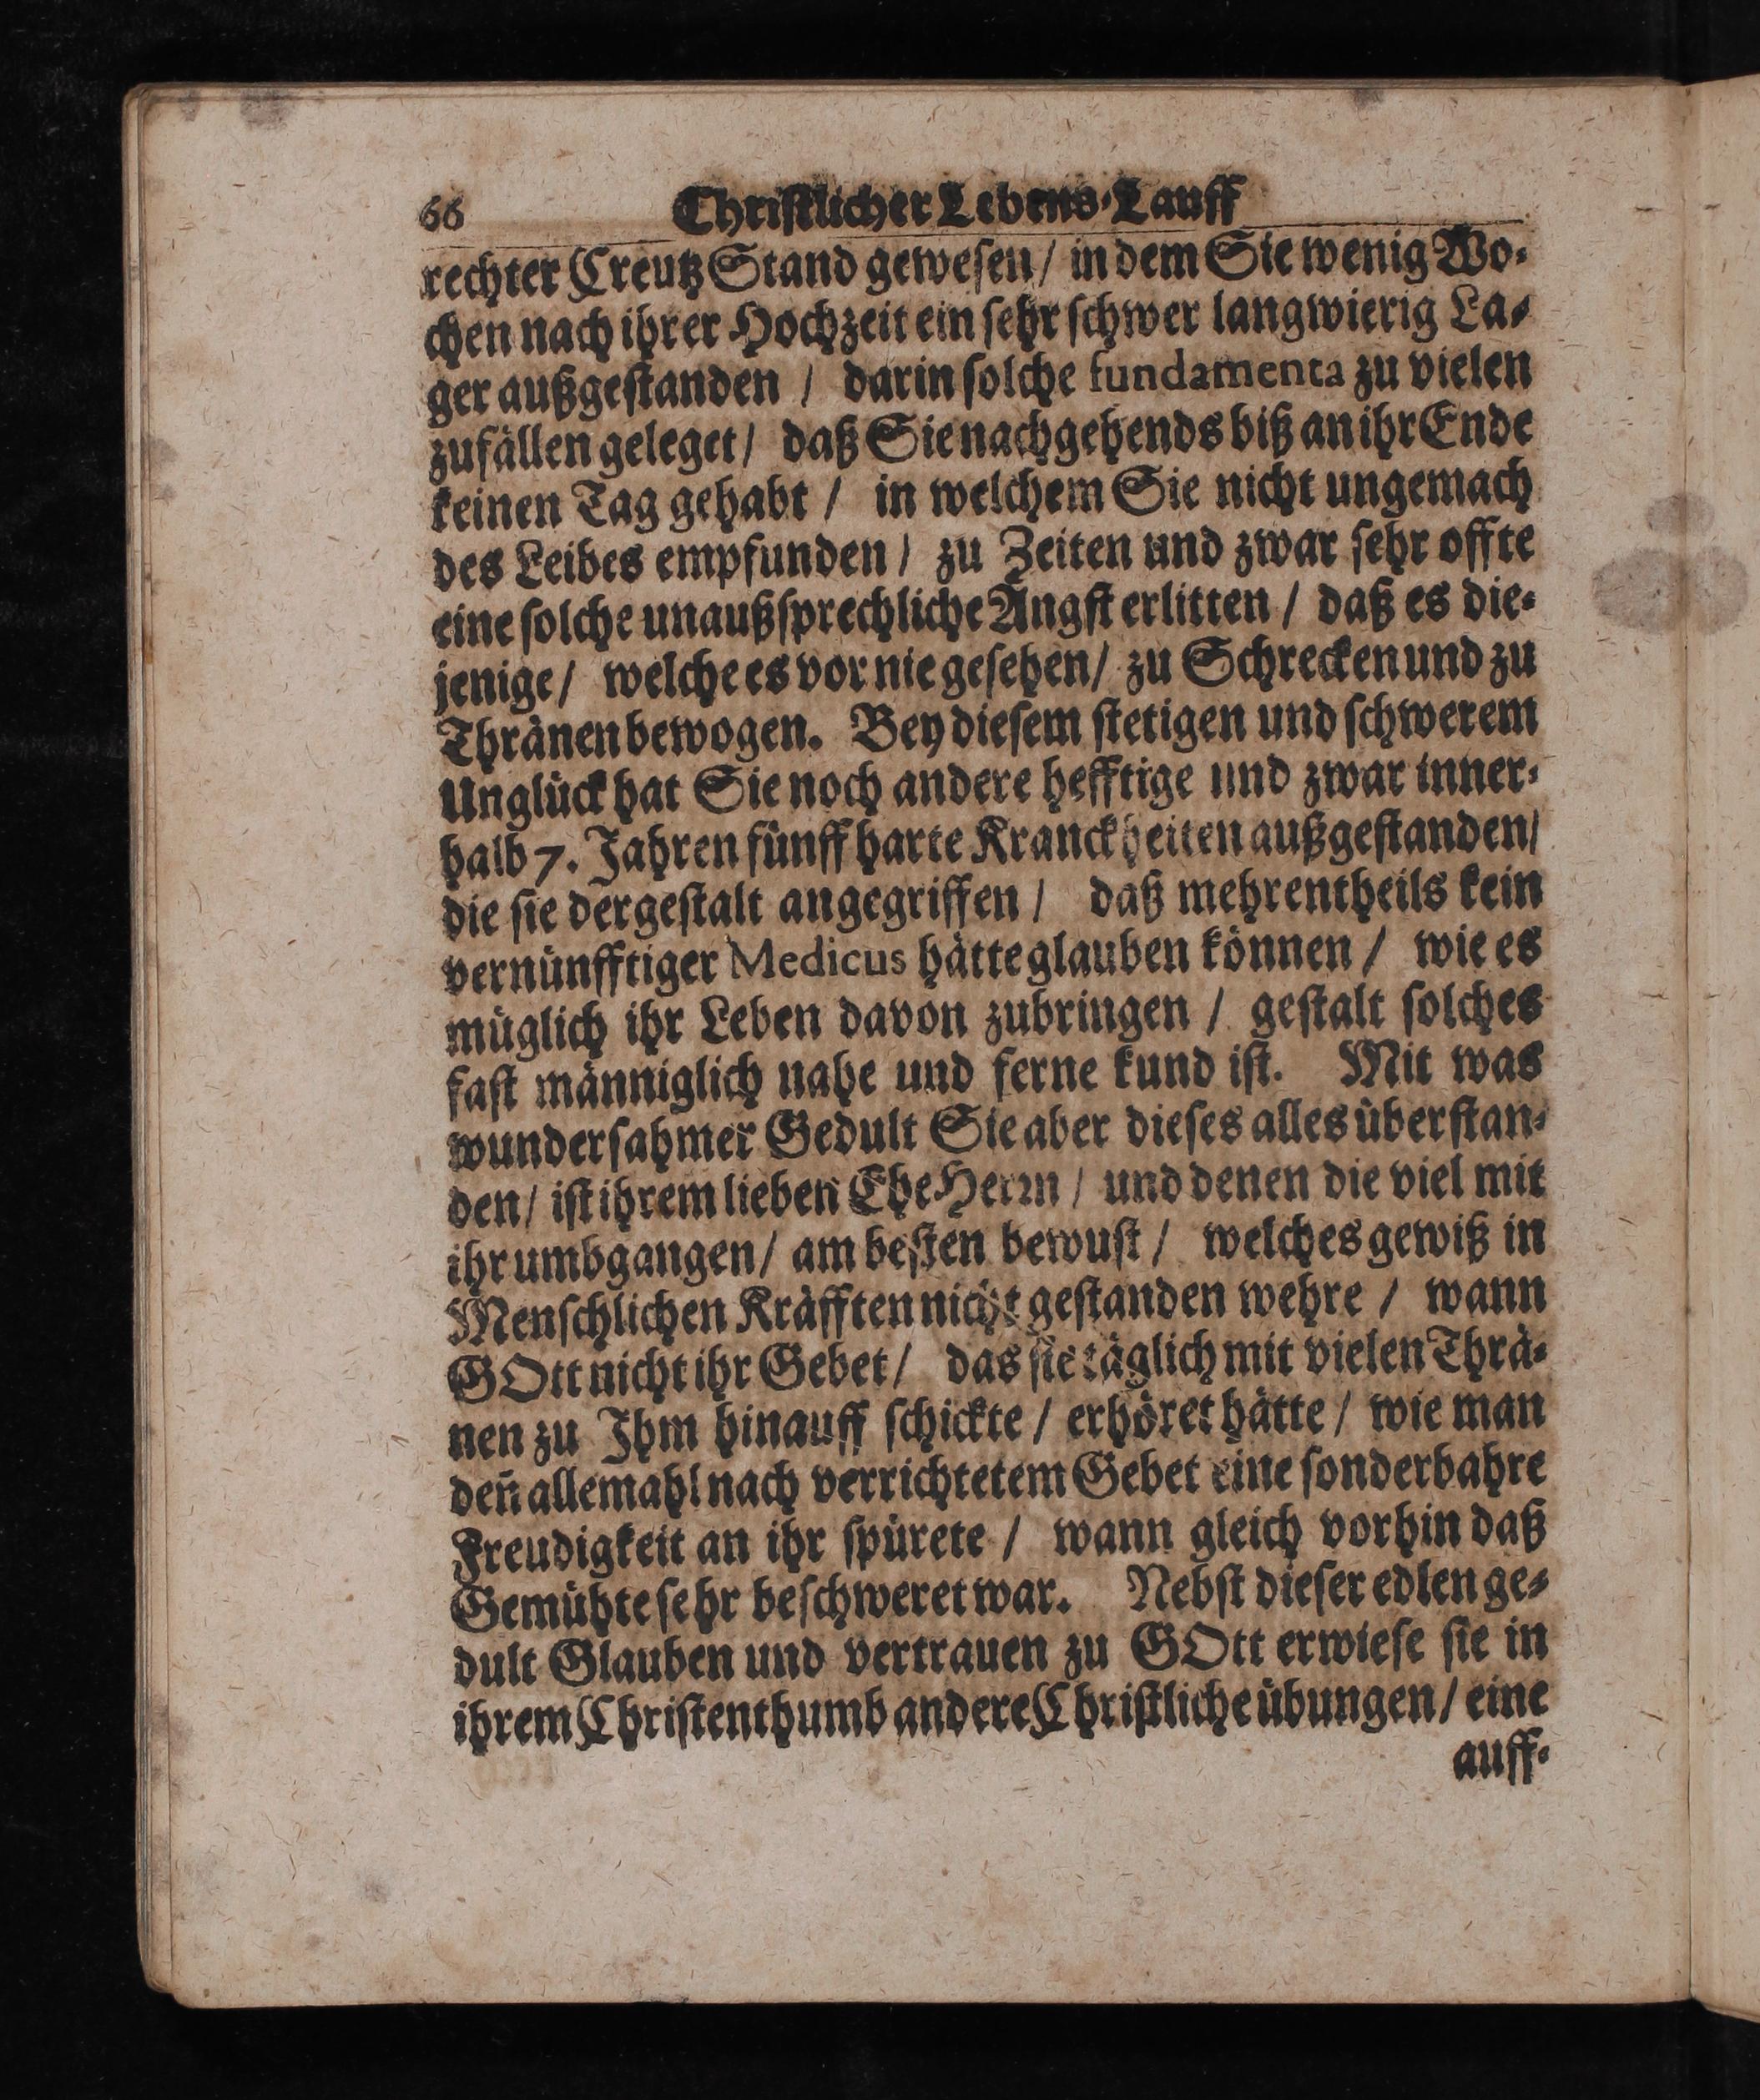 66 Christlicher Lebens-Lauff
rechter Creutz Stand gewesen / in dem Sie wenig Wo-
chen nach ihrer Hochzeit ein sehr schwer langwierig La-
ger außgestanden / darin solche fundamenta zu vielen
zufällen geleget / daß Sie nachgehends biß an ihr Ende
keinen Tag gehabt / in welchem Sie nicht ungemach
des Leibes empfunden / zu Zeiten und zwar sehr offte
eine solche unaußsprechliche Angst erlitten / daß es die-
jenige / welche es vor nie gesehen / zu Schrecken und zu
Thränen bewogen. Bey diesem stetigen und schwerem
Unglück hat Sie noch andere hefftige und zwar inner-
halb 7. Jahren fünff harte Kranckheiten außgestanden /
die sie dergestalt angegriffen / daß mehrentheils kein
vernünfftiger Medicus hätte glauben können / wie es
müglich ihr Leben davon zubringen / gestalt solches
fast männiglich nahe und ferne kund ist. Mit was
wundersahmer Gedult Sie aber dieses alles überstan-
den / ist ihrem lieben EheHerrn / und denen die viel mit
ihr umbgangen / am besten bewust / welches gewiß in
Menschlichen Kräfften nicht gestanden wehre / wann
GOtt nicht ihr Gebet / das sie täglich mit vielen Thrä-
nen zu Ihm hinauff schickte / erhöret hätte / wie man
deñ allemahl nach verrichtetem Gebet eine sonderbahre
Freudigkeit an ihr spürete / wann gleich vorhin daß
Gemühte sehr beschweret war. Nebst dieser edlen ge-
dult Glauben und vertrauen zu GOtt erwiese sie in
ihrem Christenthumb andere Christliche übungen / eine
auff-